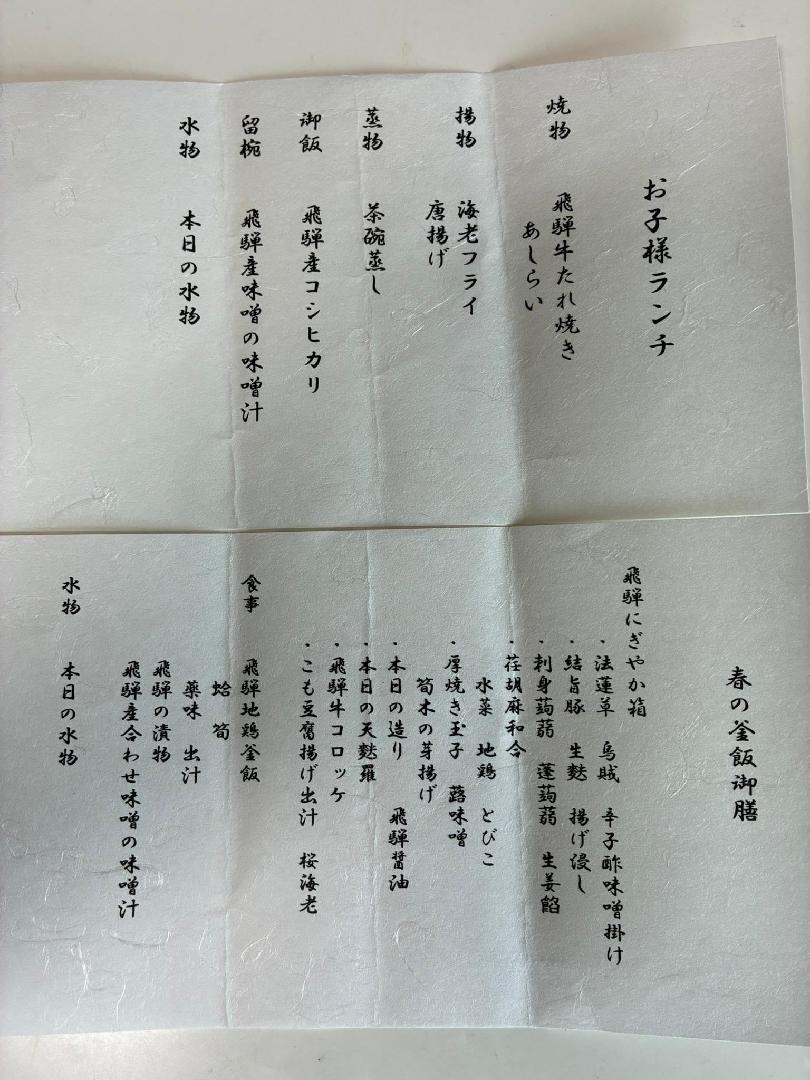 お子様ランチ
焼物　飛騨牛たれ焼き
あしらい
揚物　海老フライ
唐揚げ
蒸物　茶碗蒸し
御飯　飛騨産コシヒカリ
留椀　飛騨産味噌の味噌汁
水物　本日の水物
春の釜飯御膳
飛騨にぎやか箱
・法蓮草　烏賊　辛子酢味噌掛け
・結旨豚　生麩　揚げ浸し
・刺身蒟蒻　蓬蒟蒻　生姜餡
・荏胡麻和合
水菜　地鶏　とびこ
・厚焼き玉子　蕗味噌
筍木の芽揚げ
・本日の造り　飛騨醤油
・本日の天麩羅
・飛騨牛コロッケ
・こも豆腐揚げ出汁　桜海老
食事　飛騨地鶏釜飯
蛤　筍
薬味　出汁
飛騨の漬物
飛騨産合わせ味噌の味噌汁
水物　本日の水物